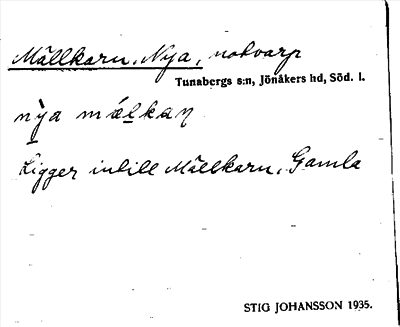 Mällkarn, Nya, notvarp
Tunabergs s:n, Jönåkers hd, Söd. l.
nỳa mǽlkaɳ
Ligger intill Mällkarn, Gamla
STIG JOHANSSON 1935.